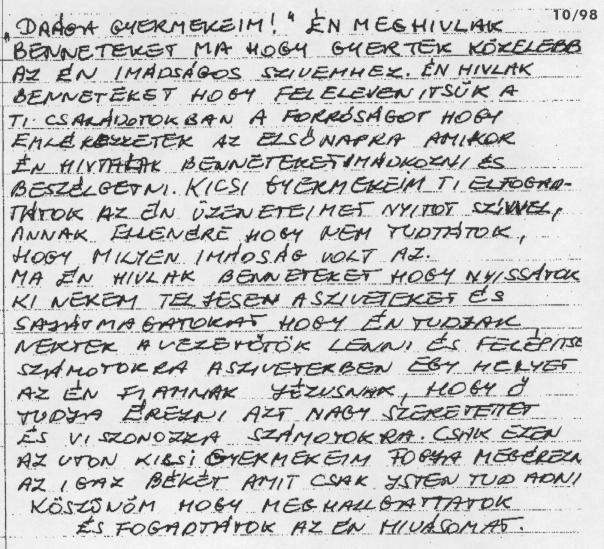 10/98
"DRÁGA GYERMEKEIM!" ÉN MEGHIVLAK
BENNETEKET MA HOGY GYERTEK KÖZELEBB
AZ ÉN IMÁDSÁGOS SZIVEMHEZ. ÉN HIVLAK
BENNETEKET HOGY FELELEVENITSÜK A
TI CSALÁDOTOKBAN A FORRÓSÁGOT HOGY
EMLÉKEZZETEK AZ ELSŐNAPRA AMIKOR
ÉN HIVTALAK BENNETEKET IMÁDKOZNI ÉS
BESZÉLGETNI. KICSI GYERMEKEIM TI ELFOGAD-
TÁTOK AZ ÉN ÜZENETEIMET NYITOT SZÍVVEL,
ANNAK ELLENÉRE HOGY NEM TUDTÁTOK,
HOGY MILYEN IMÁDSÁG VOLT AZ.
MA ÉN HIVLAK BENNETEKET HOGY NYISSÁTOK
KI NEKEM TELJESEN A SZIVETEKET ÉS
SAJÁTMAGATOKAT HOGY ÉN TUDJAK
NEKTEK A VEZETŐTÖK LENNI ÉS FELÉPITSE
SZÁMOTOKRA A SZIVETEKBEN EGY HELYET
AZ ÉN FIAMNAK JÉZUSNAK, HOGY Ő
TUDJA ÉREZNI AZT NAGY SZERETETET
ÉS VISZONOZZA SZÁMOTOKRA. CSAK EZEN
AZ UTON KICSI GYERMEKEIM FOGJA MEGÉREZN
AZ IGAZ BÉKÉT AMIT CSAK ISTEN TUD ADNI
KÖSZÖNÖM HOGY MEGHALLGATTATOK
ÉS FOGADTÁTOK AZ ÉN HIVÁSOMAT.